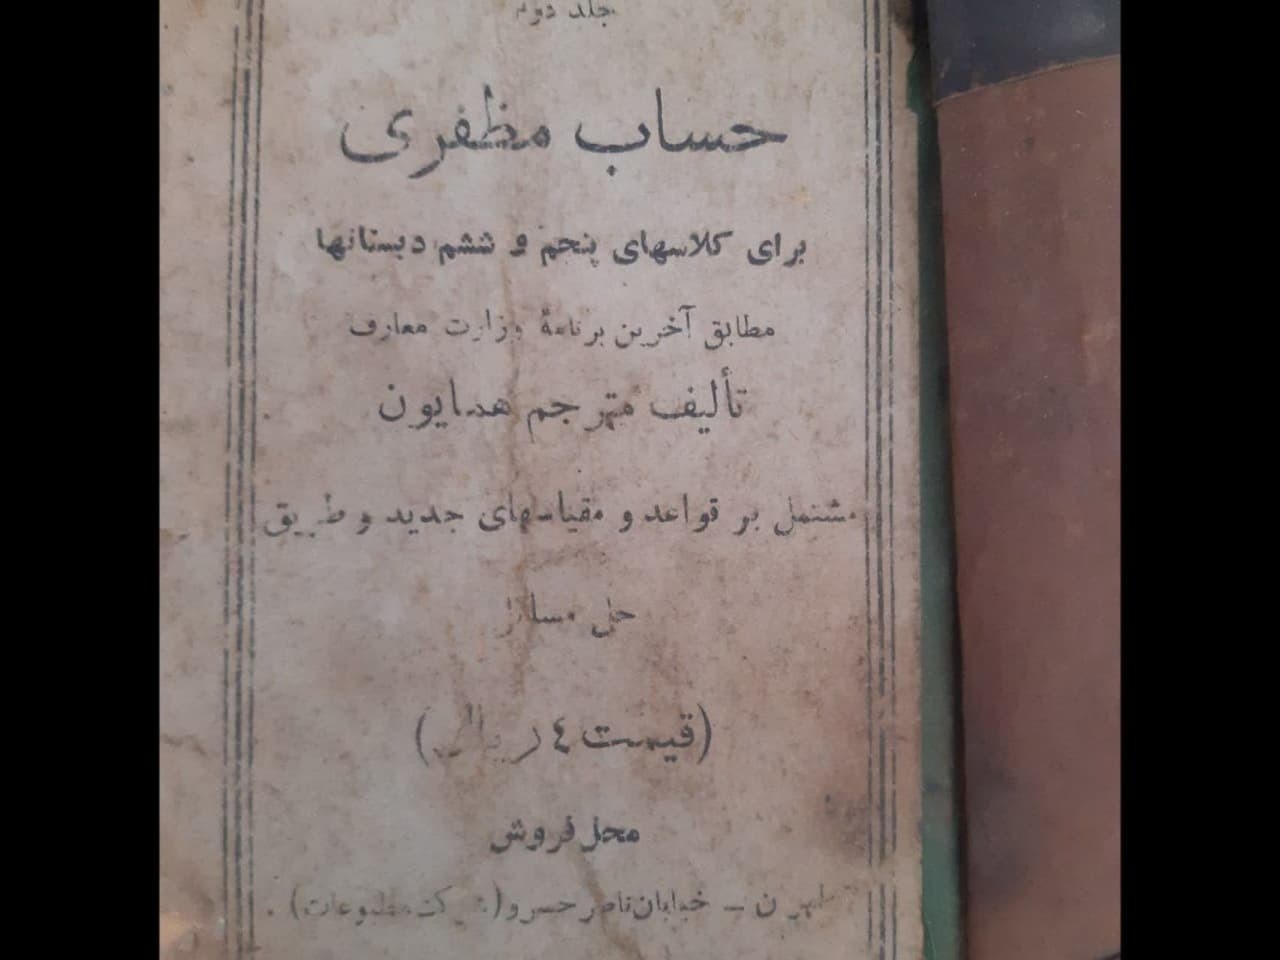 جلد دوم
حساب مظفری
برای کلاسهای پنجم و ششم دبستانها
مطابق آخرین برنامهٔ وزارت معارف
تألیف مترجم همایون
مشتمل بر قواعد و مقیاسهای جدید و طریق
حل مسائل
(قیمت ٤ ریال)
محل فروش
طهران - خیابان ناصر خسرو (شرکت مطبوعات)